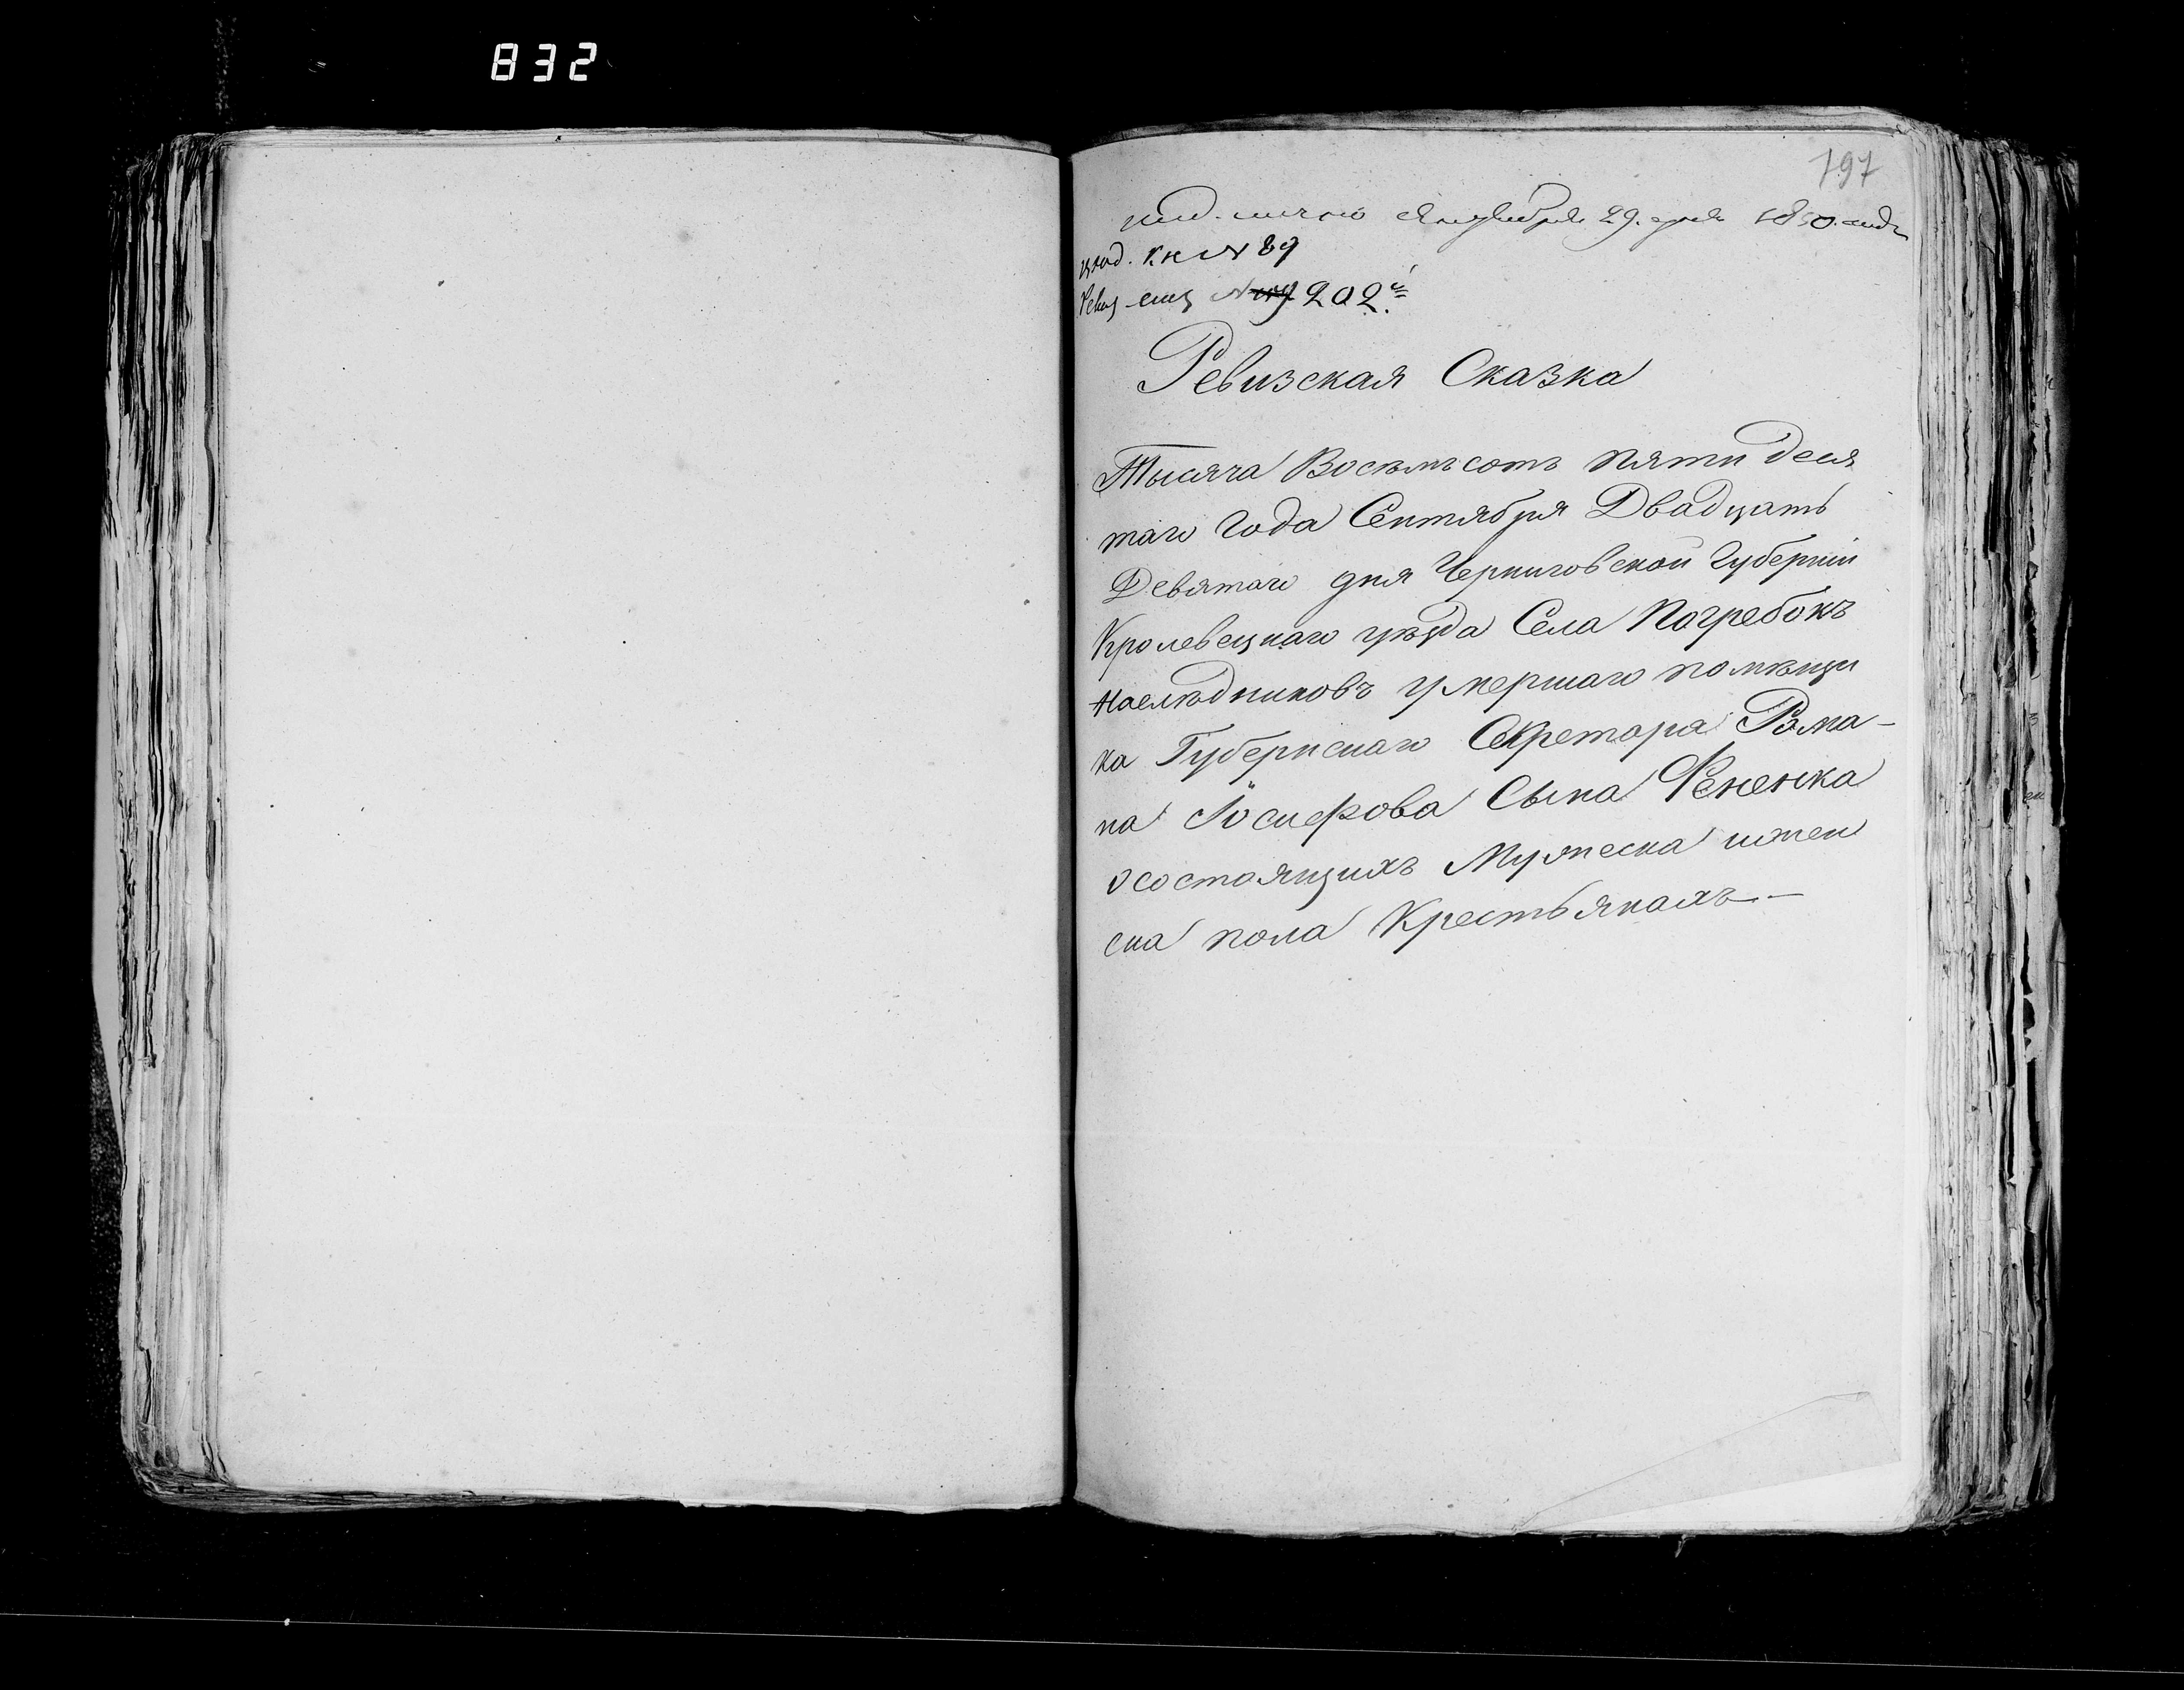 832
197
Сентября 29. дня 1850. года
вход. кн № 89
Ревиз № 202й
Ревизская Сказка
Тысяча Восемьсотъ пяти деся
таго Года Сентября Двадцать
Девятаго дня Черниговской Губерніи
Кролевецкаго уѣзда Села Погребокъ
Наслѣдниковъ умершаго помѣщи
ка Губернскаго Секретара Рома-
на Іосифова Сына Фененка
о состоящихъ Мужеска и жен
ска пола Крестьянахъ—